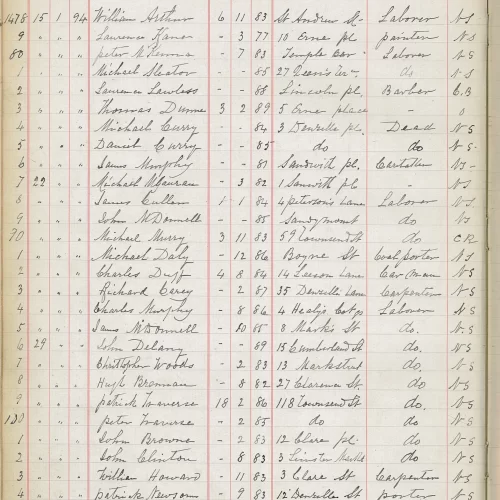 1478 15 1 94 William Arthur 6 11 83 St Andrew St Laborer N S
9 " " " Laurence Kane - 3 77 10 Erne pl. painter N S
80 " " " peter McKenna - 7 83 Temple Laborer N S
1 " " " Michael Slator - - 85 27 do N S
2 " " " Laurence Lawless - - 88 Lincoln pl. Barber C.B
3 " " " Thomas Dunne 3 2 89 5 Erne place -
4 " " " Michael Curry - - 84 3 Denzille pl. Dead N S
5 " " " Daniel Curry - - 85 do do N S
6 " " " James Murphy - - 81 Sandwith pl. N S
7 22 " " Michael - 3 82 1 pl. - N S
8 " " " James Cullen 1 1 84 4 petersons Lane Laborer N S
9 " " " John McDonnell - - 85 Sandymount do N S
90 " " " Michael Murry 3 11 83 59 Townsend St do C R
1 " " " Michael Daly - 12 86 Boyne St Coal porter N S
2 " " " Charles Duff 4 8 84 14 Leeson Lane Car man N S
3 " " " Richard Carey - 2 87 35 Denzille Lane Carpenter N S
4 " " " Charles Murphy - 8 86 4 Healy's Cot pg Laborer N S
5 " " " James McDonnell - 10 85 8 Marks St do. N S
6 29 " " John Delany - - 89 15 Cumberland St do. N S
7 " " " Christopher Woods - 2 83 13 Mark street do. N S
8 " " " Hugh Brennan - 8 82 27 Clarence St do. N S
9 " " " patrick Traverse 18 2 86 118 Townsend St do. N S
" " " peter Traverse - 2 85 do do N S
1 " " " John Browne - 2 83 12 Clare pl. do N S
2 " " " John Clinton - 8 83 3 Linster do. N S
3 " " " William Howard - 11 83 3 Clare St Carpenter N S
4 " " " patrick - 9 83 12 Denzille St porter N S